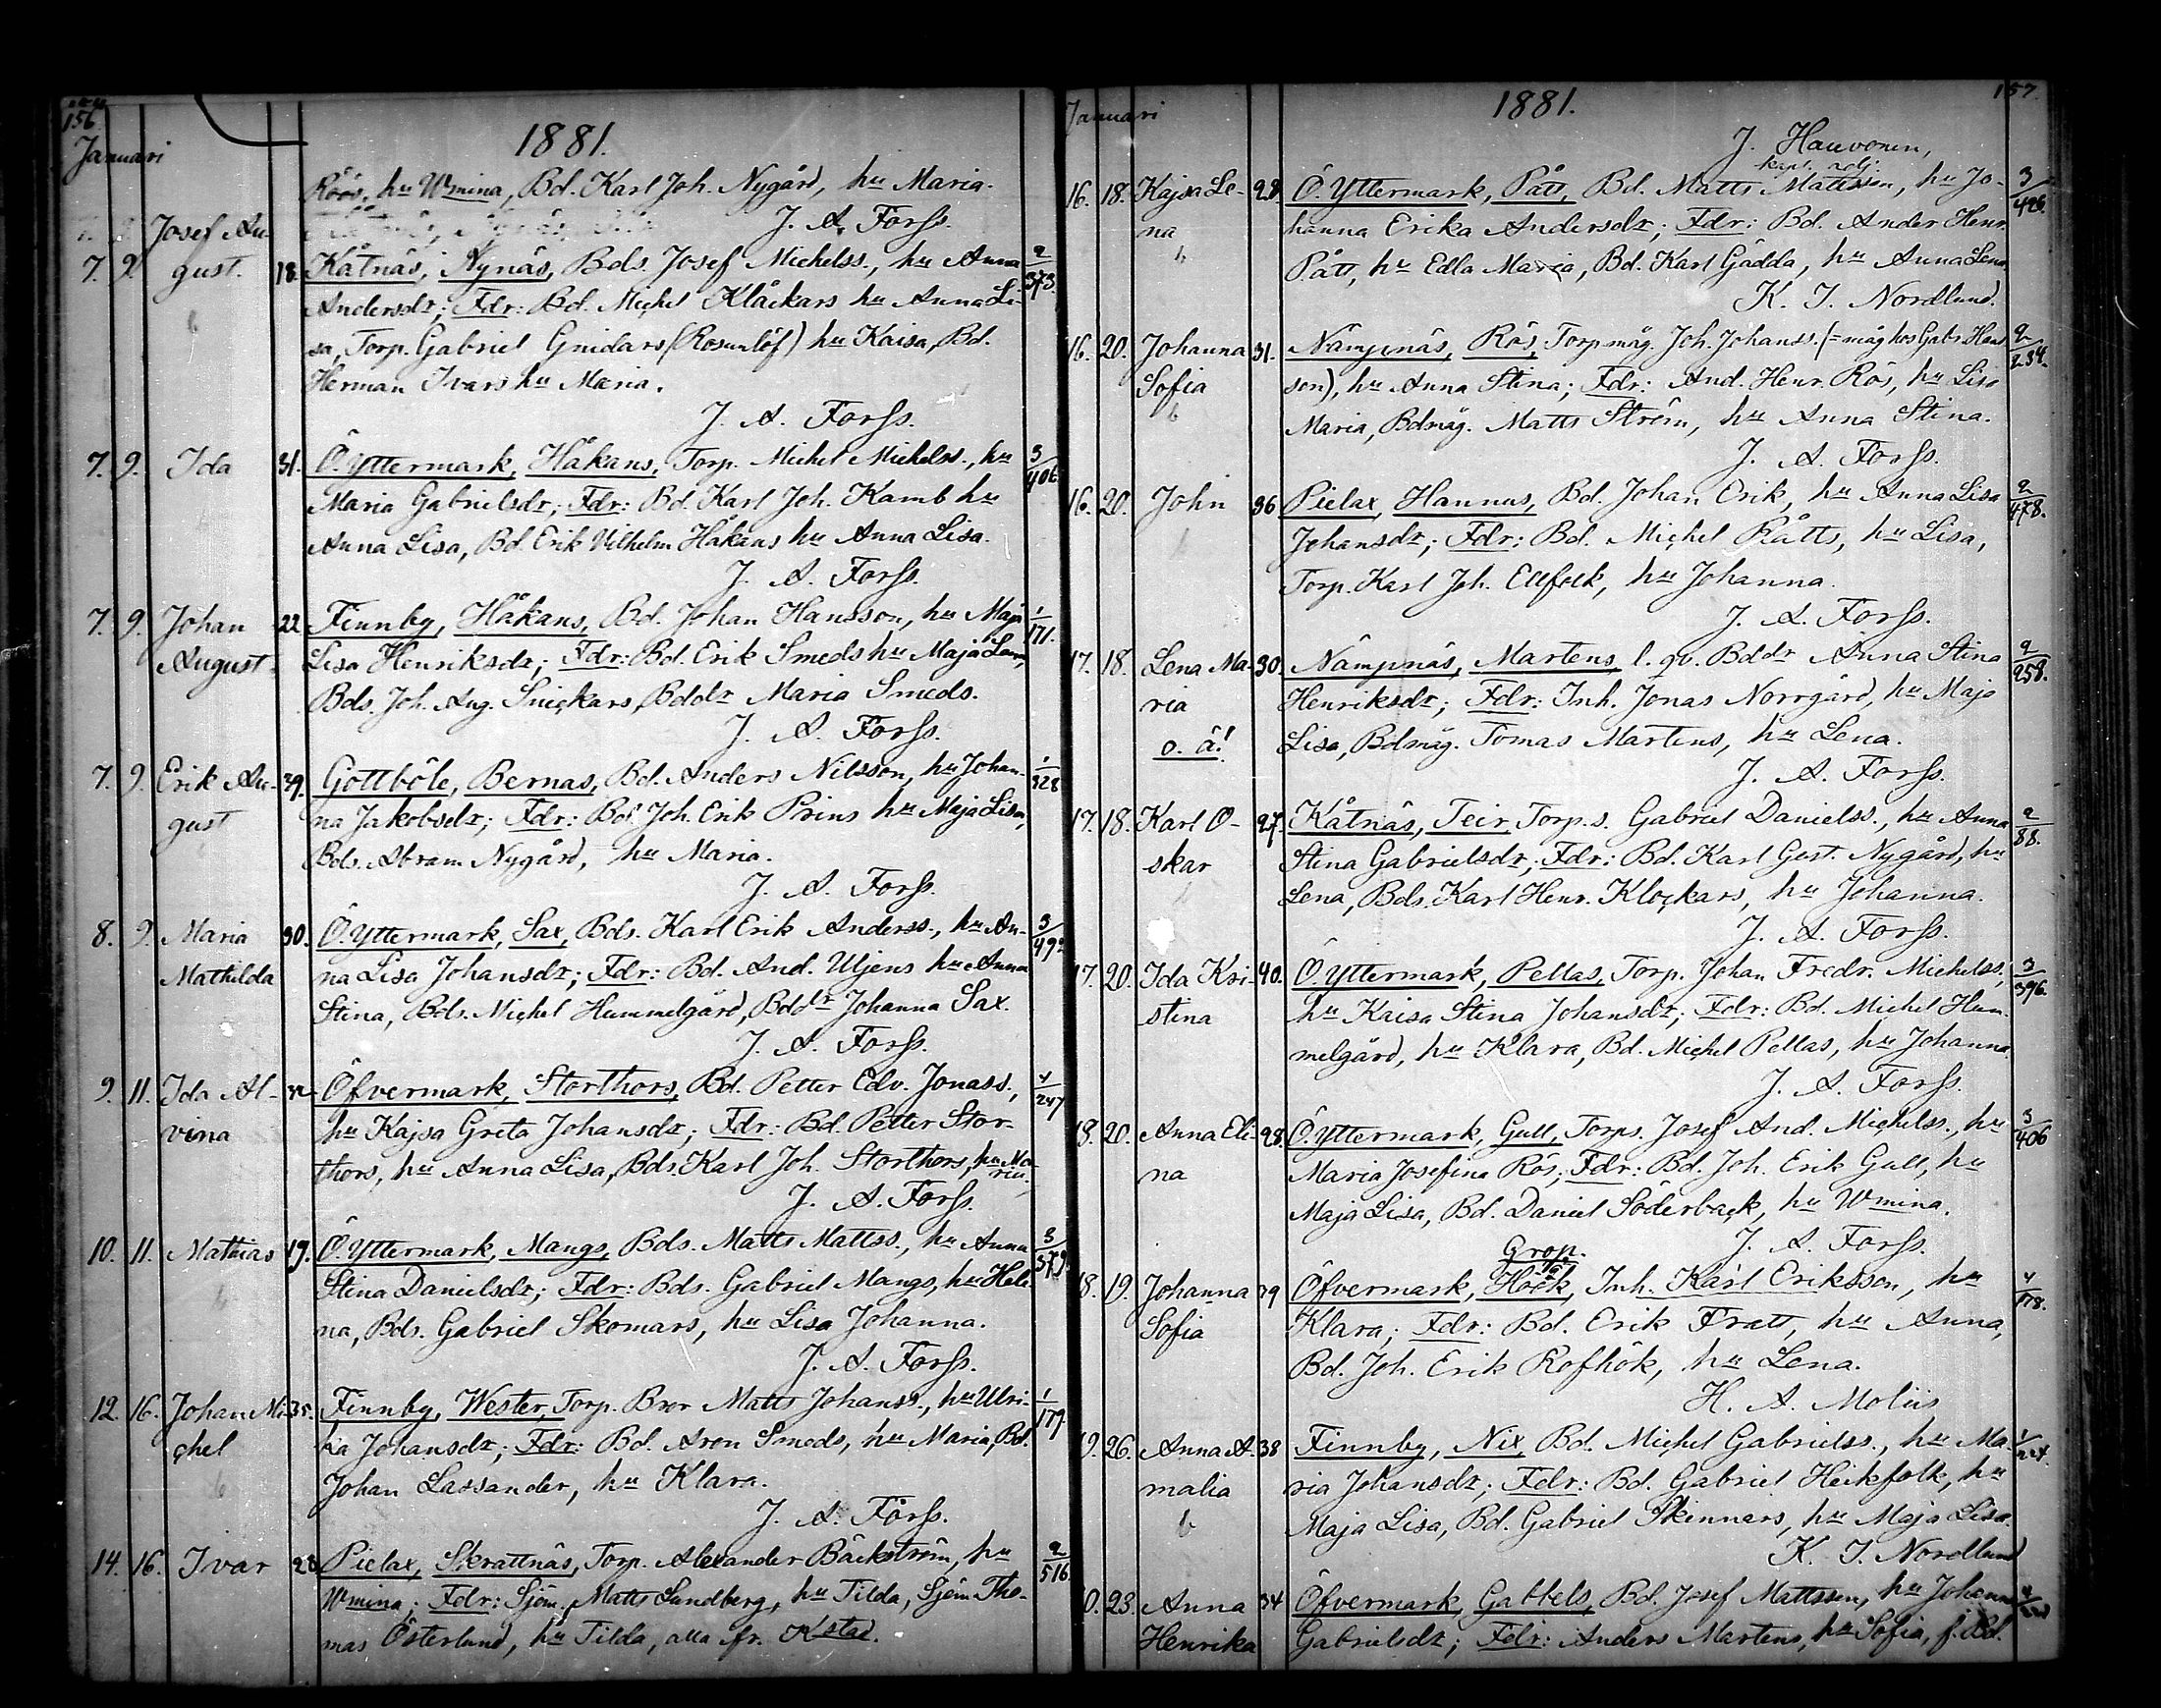 156.
Januari
1881.
Röös, hu Wmina, Bd. Karl Joh. Nygård, hu Maria.
J. A. Forss.
7. 9. Josef Au-
gust. 18. Kåtnäs, Nynäs, Bds. Josef Michelss., hu Anna 2/373.
Andersdr; Fdr: Bd. Michel Klåckars hu Anna Li-
sa, Torp. Gabriel Gnidars (Rosenlöf) hu Kaisa, Bd.
Herman Ivars hu Maria.
J. A. Forss.
7. 9. Ida 31. Ö. Yttermark, Håkans, Torp. Michel Michelss., hu 3/406
Maria Gabrielsdr; Fdr: Bd. Karl Joh. Kamb hu
Anna Lisa, Bd. Erik Vilhelm Håkans hu Anna Lisa.
J. A. Forss.
7. 9. Johan 22 Finnby, Håkans, Bd. Johan Hansson, hu Maja 1/171.
August. Lisa Henriksdr; Fdr: Bd. Erik Smeds hu Maja Lena,
Bds. Joh. Aug. Snickars, Bddr Maria Smeds.
J. A. Forss.
7. 9. Erik Au- 29. Gottböle, Bernas, Bd. Anders Nilsson, hu Johan- 1/328
gust na Jakobsdr; Fdr: Bd. Joh. Erik Prins hu Maja Lisa,
Bds. Abram Nygård, hu Maria.
J. A. Forss.
8. 9. Maria 30. Ö. Yttermark, Sax, Bds. Karl Erik Anderss., hu An- 3/492
Mathilda na Lisa Johansdr; Fdr: Bd. And. Uljens hu Anna
Stina, Bds. Michel Hummelgård, Bddr Johanna Sax.
J. A. Forss.
9. 11. Ida Al- 32 Öfvermark, Storthors, Bd. Petter Edv. Jonass., 4/247
vina hu Kajsa Greta Johansdr; Fdr: Bd. Petter Stor-
thors, hu Anna Lisa, Bds. Karl Joh. Storthors, hu Ma-
ria.
J. A. Forss.
10. 11. Mathias 19. Ö. Yttermark, Mangs, Bds. Matts Mattss., hu Anna 3/379
Stina Danielsdr; Fdr: Bds. Gabriel Mangs, hu Hele-
na, Bds. Gabriel Skomars, hu Lisa Johanna.
J. A. Forss.
12. 16. Johan Mi- 35. Finnby, Wester, Torp. Bror Matts Johanss., hu Ulri- 1/179
chel ka Johansdr; Fdr: Bd. Aron Smeds, hu Maria, Bd.
Johan Lassander, hu Klara.
J. A. Forss.
14. 16. Ivar 28 Pielax, Skrattnäs, Torp. Alexander Bäckström, hu 2/516.
Wmina; Fdr: Sjöm. Matts Sundberg, hu Tilda, Sjöm Tho-
mas Österlund, hu Tilda, alla fr. Kstad.
157.
Januari
1881.
J. Hauvonen,
kapl. adj.
16. 18. Kajsa Le- 28. Ö. Yttermark, Pått, Bd. Matts Mattsson, hu Jo- 3/426.
na hanna Erika Andersdr; Fdr: Bd. Ander Henr.
Pått, hu Edla Maria, Bd. Karl Gädda, hu Anna Lena.
K. I. Nordlund.
16. 20. Johanna 31. Nämpnäs, Rös, Torpmåg. Joh. Johanss. (= måg hos Gabr. Hans 2/234.
Sofia son), hu Anna Stina; Fdr: And. Henr. Rös, hu Lisa
Maria, Bdmåg. Matts Ström, hu Anna Stina.
J. A. Forss.
16. 20. John 36 Pielax, Hannus, Bd. Johan Erik, hu Anna Lisa 2/478.
Johansdr; Fdr: Bd. Michel Råtts, hu Lisa,
Torp. Karl Joh. Ellfolk, hu Johanna.
J. A. Forss.
17. 18. Lena Ma- 30. Nämpnäs, Martens, l. qv. Bddr Anna Stina 2/258.
ria Henriksdr; Fdr: Inh. Jonas Norrgård, hu Maja
o. ä! Lisa, Bdmåg. Tomas Martens, hu Lena.
J. A. Forss.
17. 18. Karl O- 27. Kåtnäs, Teir, Torp.s. Gabriel Danielss., hu Anna 2/88.
skar Stina Gabrielsdr; Fdr: Bd. Karl Gust. Nygård, hu
Lena, Bds. Karl Henr. Klockars, hu Johanna.
J. A. Forss.
17. 20. Ida Kri- 40. Ö. Yttermark, Pellas, Torp. Johan Fredr. Michelss, 3/396.
stina hu Kaisa Stina Johansdr; Fdr: Bd. Michel Hum-
melgård, hu Klara, Bd. Michel Pellas, hu Johanna.
J. A. Forss.
18. 20. Anna Eli- 28. Ö. Yttermark, Gull, Torps. Josef And. Michelss., hu 3/406
na Maria Josefina Rös; Fdr: Bd. Joh. Erik Gull, hu
Maja Lisa, Bd. Daniel Söderback, hu Wmina.
J. A. Forss.
Grop.
18. 19. Johanna 29 Öfvermark, Höck, Inh. Karl Eriksson, hu 4/178.
Sofia Klara; Fdr: Bd. Erik Fratt, hu Anna,
Bd. Joh. Erik Rofhök, hu Lena.
H. A. Moliis
19. 26. Anna A- 38 Finnby, Nix, Bd. Michel Gabrielss., hu Ma-
malia ria Johansdr; Fdr: Bd. Gabriel Heikfolk, hu
Maja Lisa, Bd. Gabriel Skinnars, hu Maja Lisa.
K. I. Nordlund
23. Anna 34 Öfvermark, Gabbels, Bd. Josef Mattsson, hu Johanna
Henrika Gabrielsdr; Fdr: Anders Martens, hu Sofia, f. Bd.